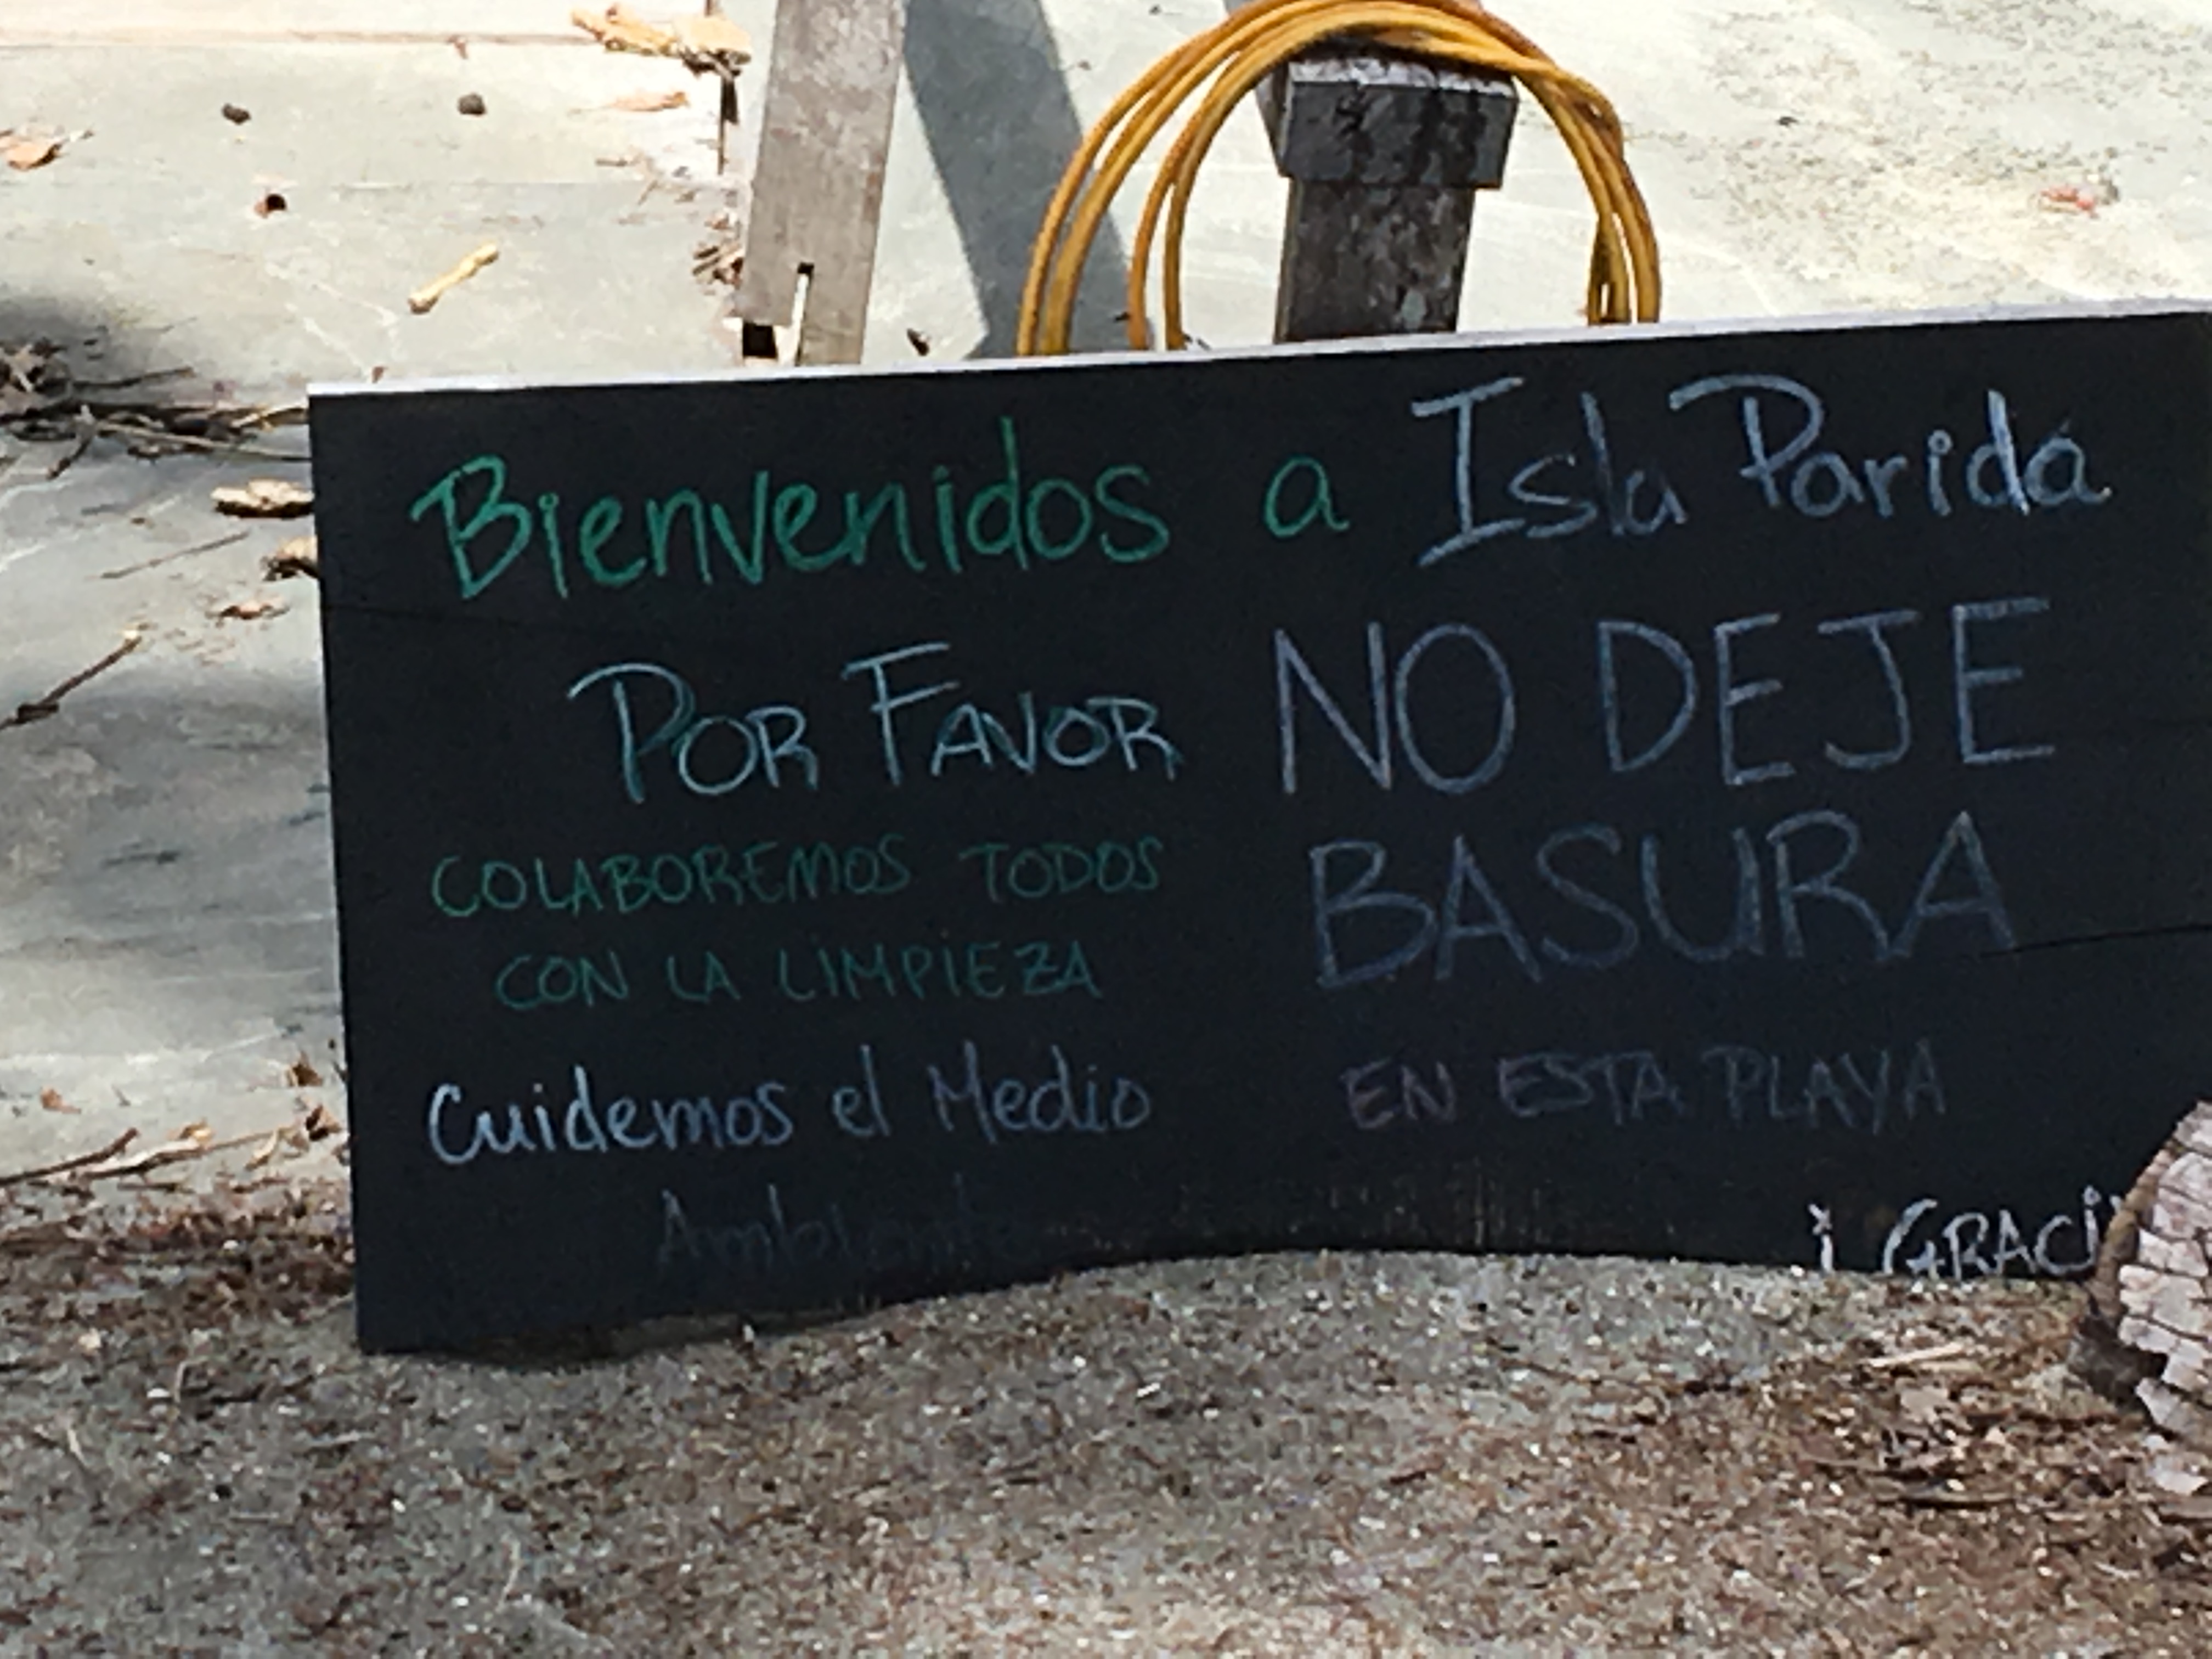 Bienvenidos a Isla Parida
POR FAVOR NO DEJE
BASURA
COLABOREMOS TODOS
CON LA LIMPIEZA
Cuidemos el Medio
Ambiente
EN ESTA PLAYA
¡ GRACI